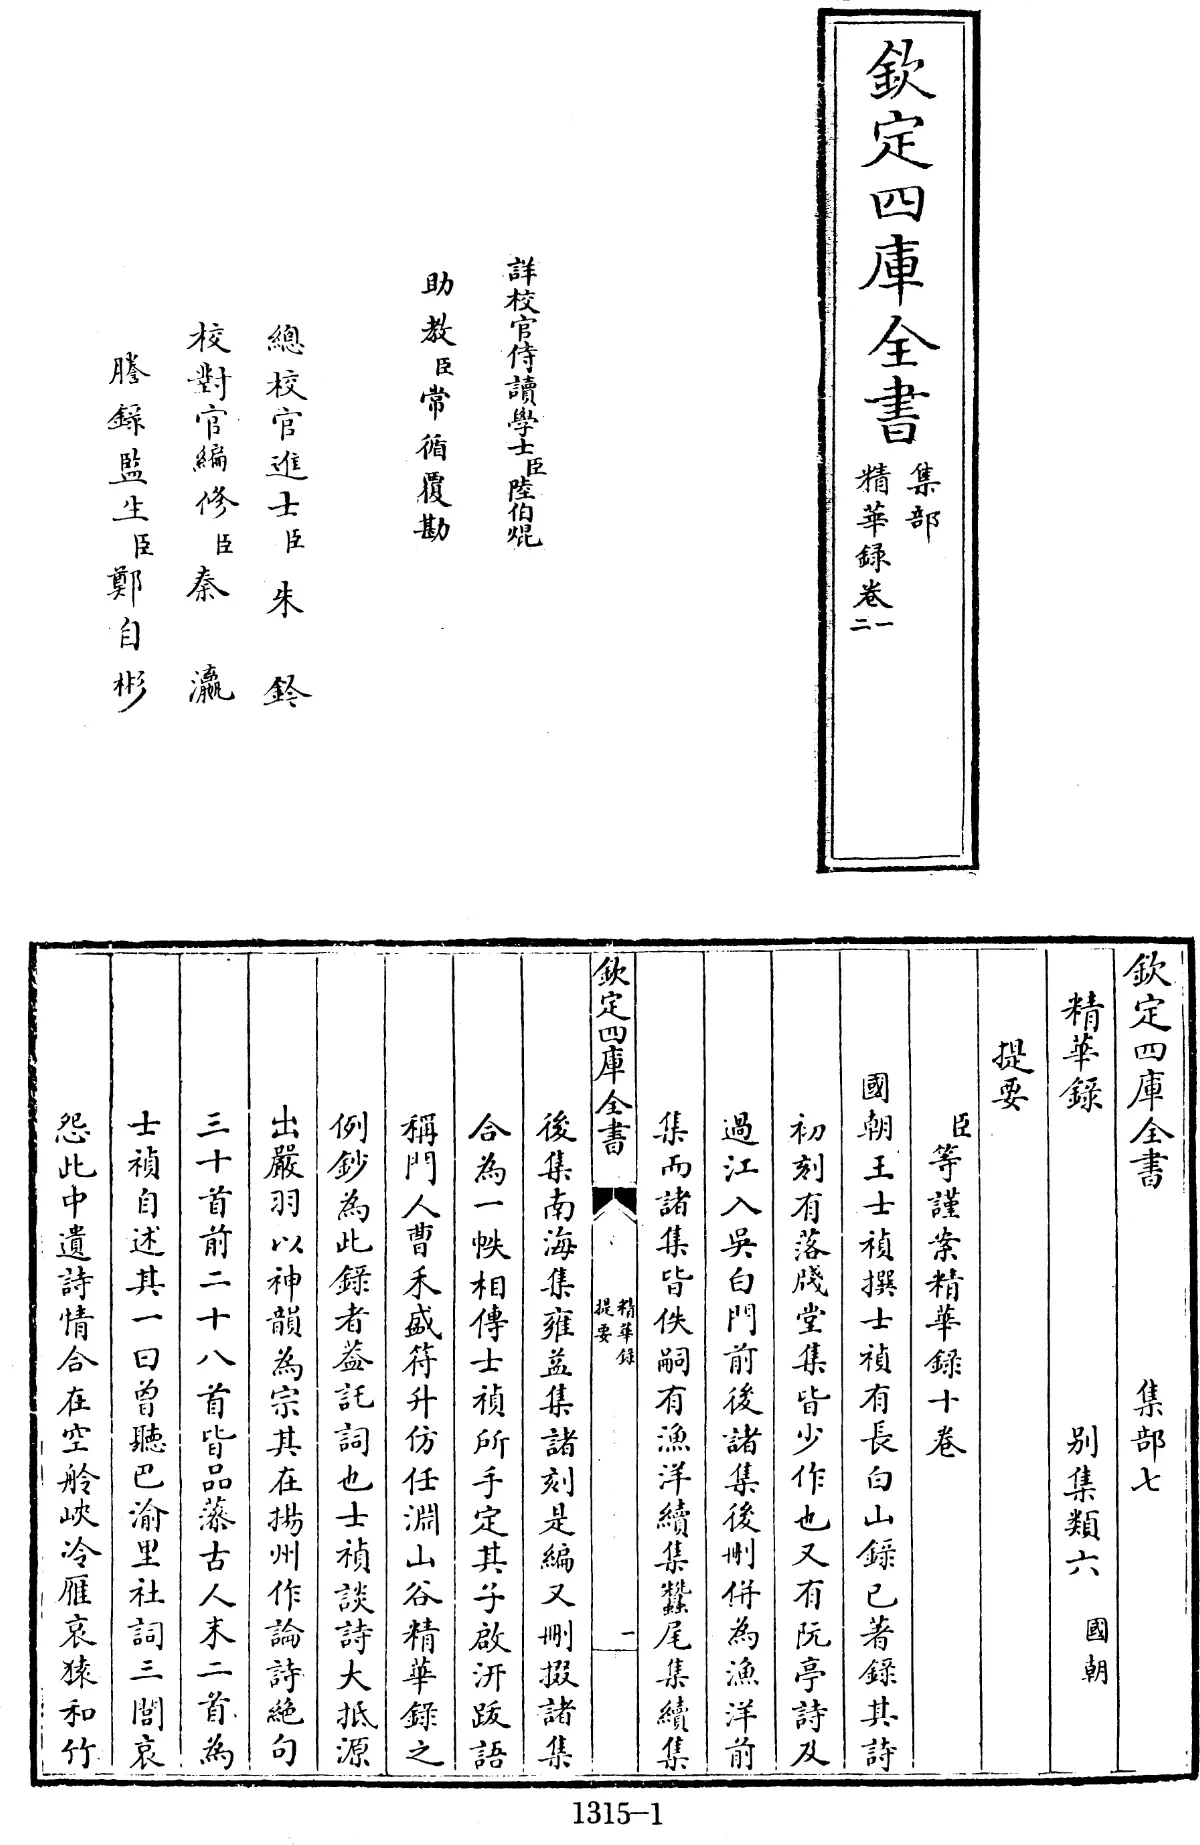 欽定四庫全書
集部
精華録卷一
二
詳校官侍讀學士臣陸伯焜
助教臣常循覆勘
總校官進士臣朱鈐
校對官編修臣秦瀛
謄録監生臣鄭自彬
欽定四庫全書 集部七
精華録 別集類六 國朝
提要
臣等謹案精華録十卷
國朝王士禎撰士禎有長白山録已著録其詩
初刻有落牋堂集皆少作也又有阮亭詩及
過江入吳白門前後諸集後刪併為漁洋前
集而諸集皆佚嗣有漁洋續集蠶尾集續集
欽定四庫全書
精華録
提要
一
後集南海集雍益集諸刻是編又刪掇諸集
合為一帙相傳士禎所手定其子啟汧跋語
稱門人曹禾盛符升仿任淵山谷精華録之
例鈔為此録者葢託詞也士禎談詩大抵源
出嚴羽以神韻為宗其在揚州作論詩絶句
三十首前二十八首皆品藻古人末二首為
士禎自述其一曰曾聽巴渝里社詞三閭哀
怨此中遺詩情合在空舲峽冷雁哀猿和竹
1315-1